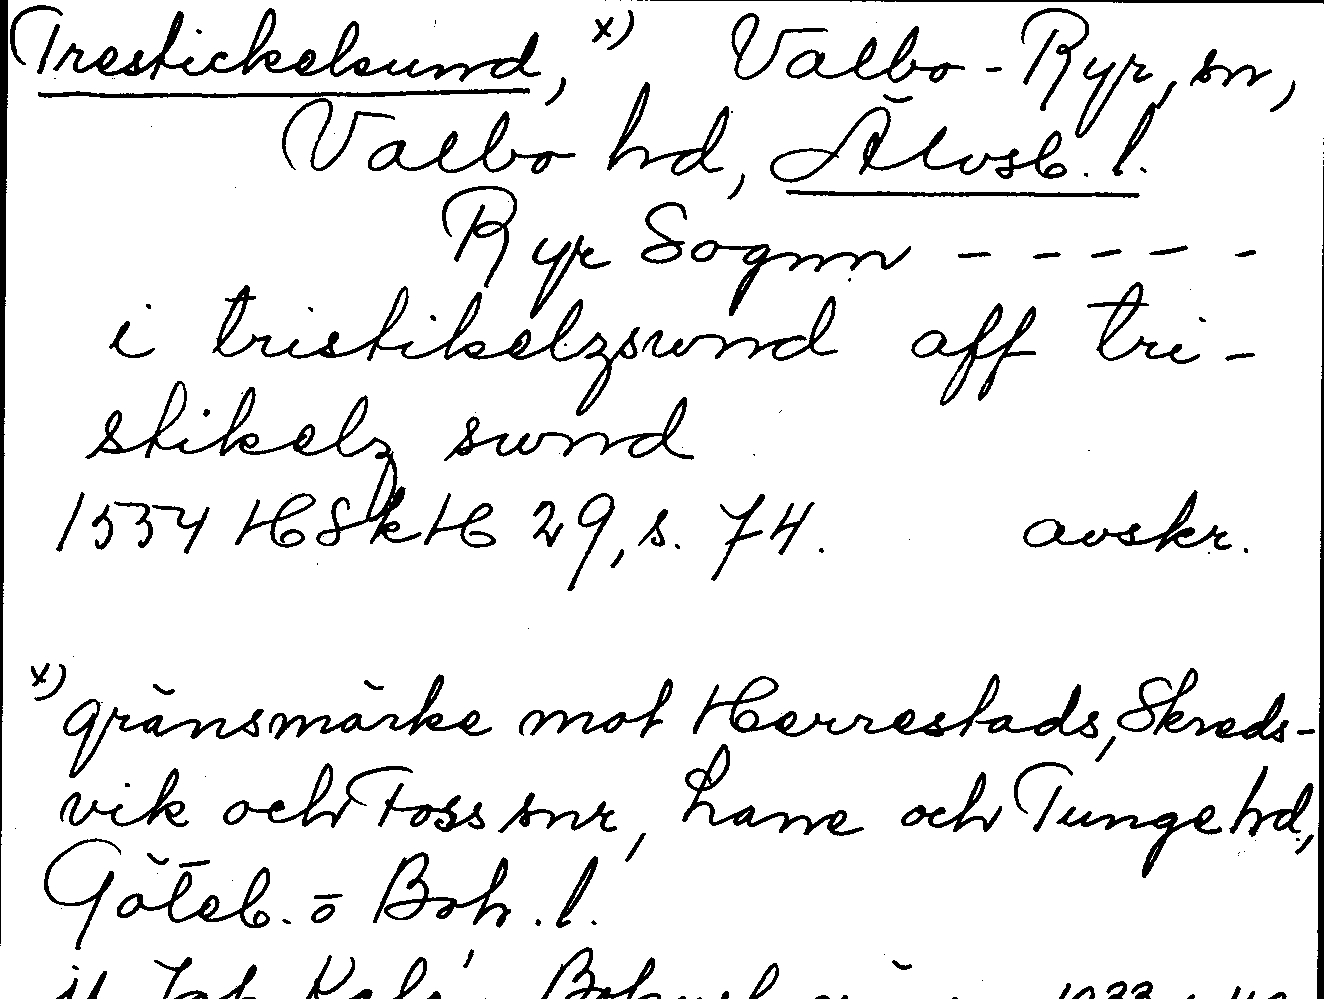 Trestickelsund, x) Valbo-Ryr, sn,
Valbo hd, Älvsb. l.
Ryr Sognn - - - - -
i tristikelzsund aff tri-
stikelz sund
1534 HSkH 29, s. 74. avskr.
x) gränsmärke mot Herrestads, Skreds-
vik och Foss snr, Lane och Tunge hd,
Göteb. o Boh. l.